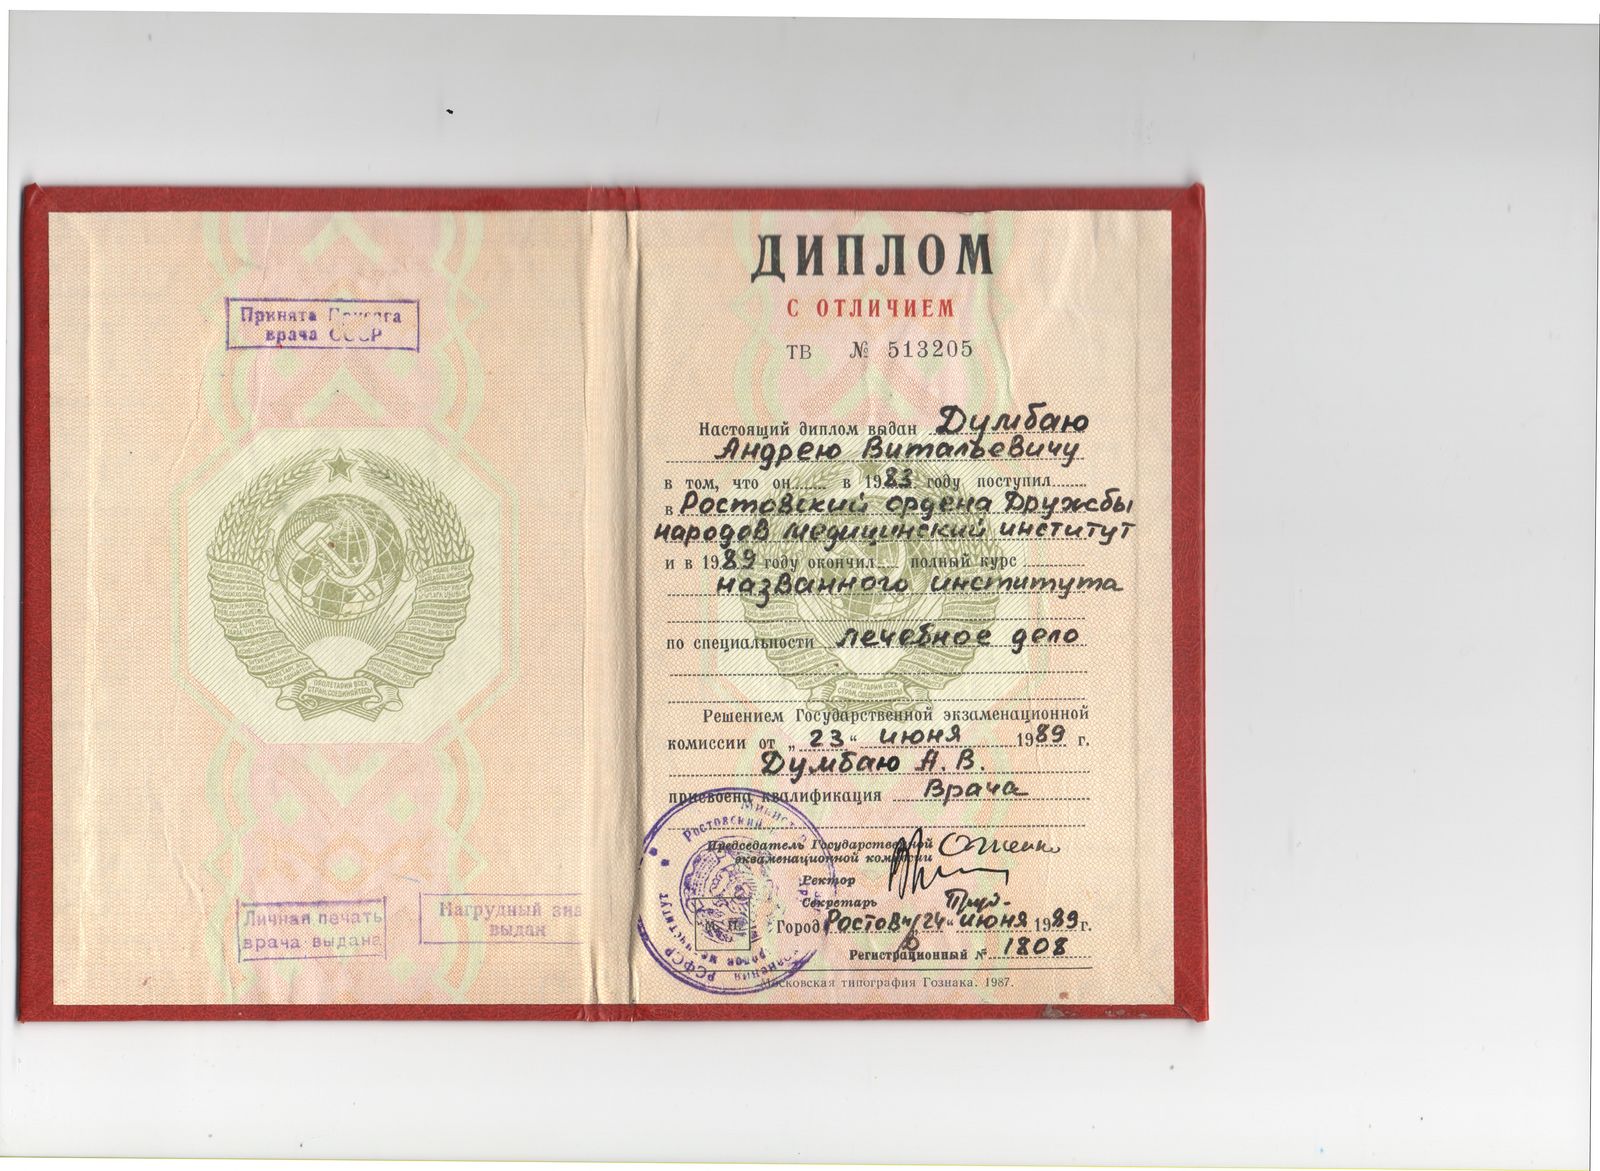 Принята Присяга
врача СССР
ПРОЛЕТАРИИ ВСЕХ
СТРАН, СОЕДИНЯЙТЕСЬ!
Личная печать
врача выдана
Нагрудный зна
выдан
ДИПЛОМ
С ОТЛИЧИЕМ
ТВ № 513205
Настоящий диплом выдан Думбаю
Андрею Витальевичу
в том, что он в 1983 году поступил
в Ростовский ордена Дружбы
народов медицинский институт
и в 1989 году окончил полный курс
названного института
по специальности лечебное дело
ПРОЛЕТАРИИ ВСЕХ
СТРАН, СОЕДИНЯЙТЕСЬ!
Решением Государственной экзаменационной
комиссии от „23“ июня 1989 г.
Думбаю А. В.
присвоена квалификация Врача
Председатель Государственной
экзаменационной комиссии
Ректор
Секретарь
Город Ростов н/Д „24“ июня 1989 г.
Регистрационный № 1808
Московская типография Гознака. 1987.